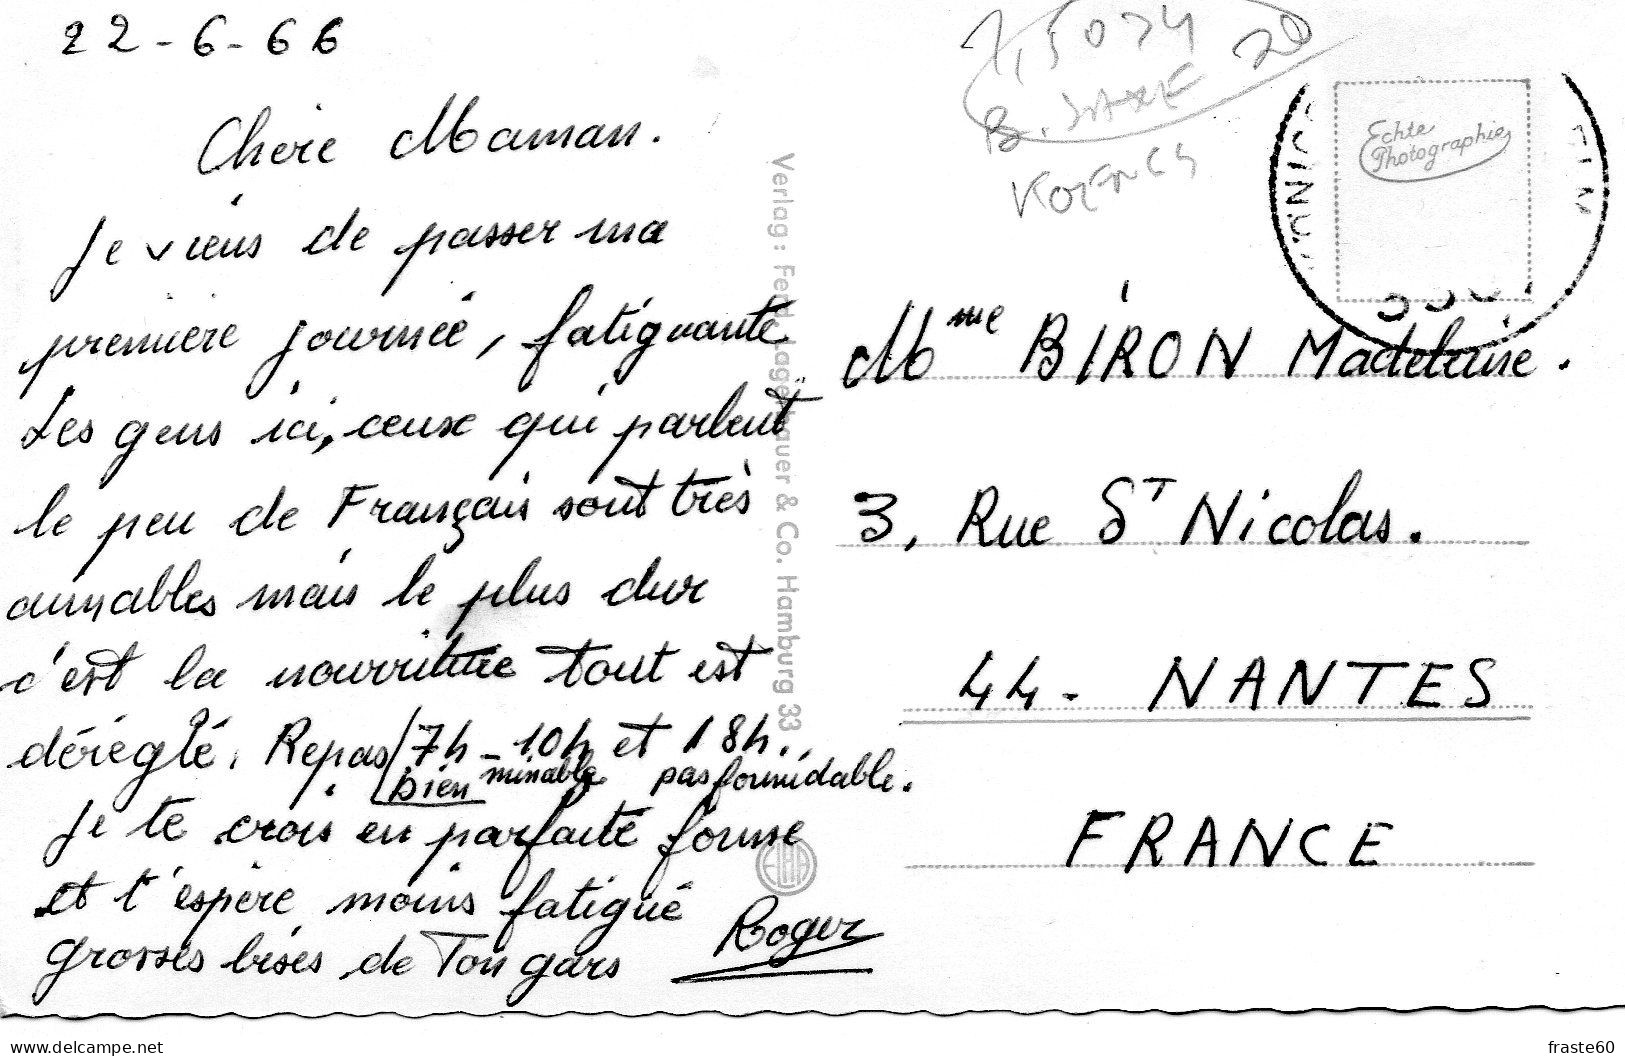 22-6-66
Chère Maman.
Je viens de passer ma
première journée, fatiguante
Les gens ici, ceux qui parlent
le peu de Français sont très
aimables mais le plus dur
c'est la nourriture tout est
déréglé. Repas 7h - 10h et 18h.
bien minable pas formidable.
Je te crois en parfaite forme
et t'espère moins fatigué
grosses bises de Ton gars
Roger
Echte
Photographie
Mme BIRON Madeleine.
3, Rue ST Nicolas.
44 - NANTES
FRANCE
& Co. Hamburg 33
www.delcampe.net
fraste60